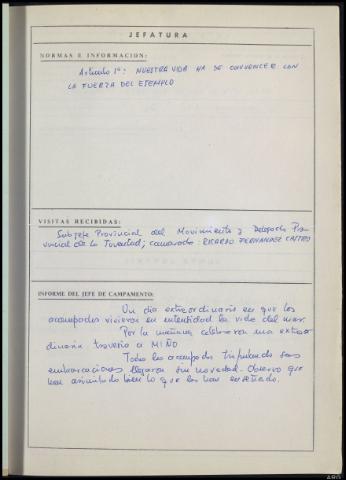 JEFATURA
NORMAS E INFORMACION:
Artículo 1º: NUESTRA VIDA HA DE CONVENCER CON
LA FUERZA DEL EJEMPLO
VISITAS RECIBIDAS:
Subjefe Provincial del Movimiento y Delegado Pro-
vincial de la Juventud; camarada: RICARDO FERNANDEZ CASTRO
INFORME DEL JEFE DE CAMPAMENTO:
Un dia extraordinario en que los
acampados vivieron en intensidad la vida del mar.
Por la mañana celebraron una extraor
dinaria travesia a MIÑO
Todos los acampados tripulando sus
embarcaciones llegaron sin novedad. Observo que
han asimilado bien lo que les han enseñado.